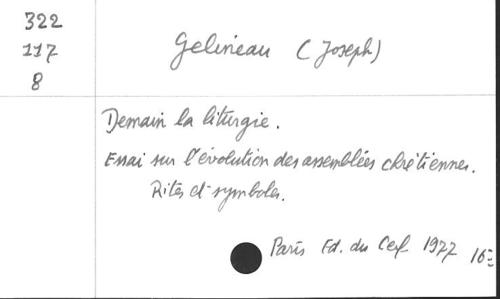 322
117
8
Gelineau (Joseph)
Demain la liturgie.
Essai sur l'évolution des assemblées chrétiennes.
Rites et symboles.
Paris Ed. du Cerf 1977 16º